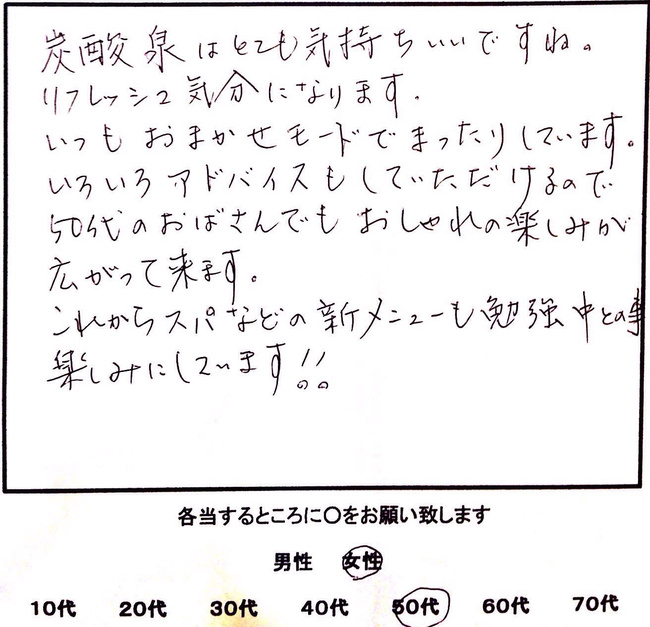 炭酸泉はとても気持ちいいですね。
リフレッシュ気分になります.
いつもおまかせモードでまったりしています。
いろいろアドバイスもしていただけるので
50代のおばさんでもおしゃれの楽しみが
広がって来ます。
これからスパなどの新メニューも勉強中との事
楽しみにしています!!
各当するところに〇をお願い致します
男性 女性
10代 20代 30代 40代 50代 60代 70代